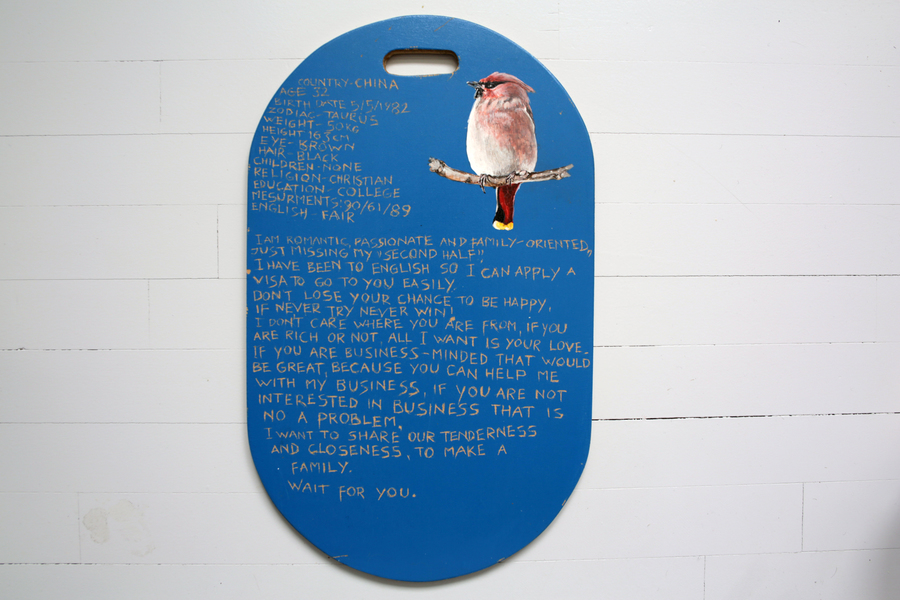 COUNTRY-CHINA
AGE 32
BIRTH DATE 5/5/1982
ZODIAC-TAURUS
WEIGHT-50KG
HEIGHT 163cm
EYE-BROWN
HAIR-BLACK
CHILDREN-NONE
RELIGION-CHRISTIAN
EDUCATION-COLLEGE
MESURMENTS:90/61/89
ENGLISH-FAIR
I AM ROMANTIC, PASSIONATE AND FAMILY-ORIENTED,
JUST MISSING MY "SECOND HALF".
I HAVE BEEN TO ENGLISH SO I CAN APPLY A
VISA TO GO TO YOU EASILY.
DON'T LOSE YOUR CHANCE TO BE HAPPY,
IF NEVER TRY NEVER WIN!
I DON'T CARE WHERE YOU ARE FROM, IF YOU
ARE RICH OR NOT, ALL I WANT IS YOUR LOVE.
IF YOU ARE BUSINESS-MINDED THAT WOULD
BE GREAT, BECAUSE YOU CAN HELP ME
WITH MY BUSINESS, IF YOU ARE NOT
INTERESTED IN BUSINESS THAT IS
NO A PROBLEM.
I WANT TO SHARE OUR TENDERNESS
AND CLOSENESS, TO MAKE A
FAMILY.
WAIT FOR YOU.